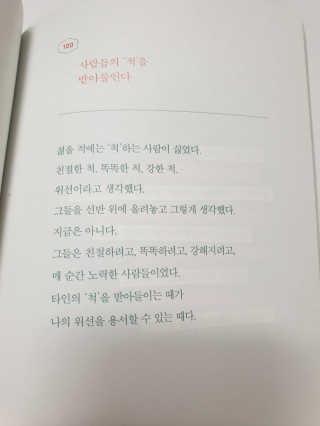 100
사람들의 '척'을
받아들인다
젊을 적에는 '척'하는 사람이 싫었다.
친절한 척, 똑똑한 척, 강한 척.
위선이라고 생각했다.
그들을 선반 위에 올려놓고 그렇게 생각했다.
지금은 아니다.
그들은 친절하려고, 똑똑하려고, 강해지려고,
매 순간 노력한 사람들이었다.
타인의 '척'을 받아들이는 때가
나의 위선을 용서할 수 있는 때다.